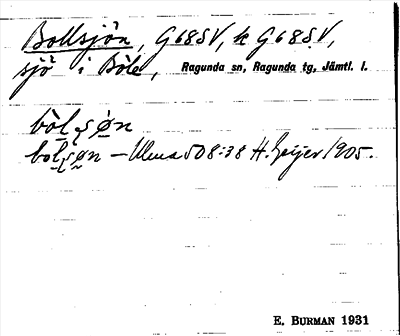 Bollsjön, G68SV, k G68SV,
sjö i Böle, Ragunda sn, Ragunda tg, Jämtl. l.
– Ulma 508:38 H. Geijer 1905.
E. BURMAN 1931